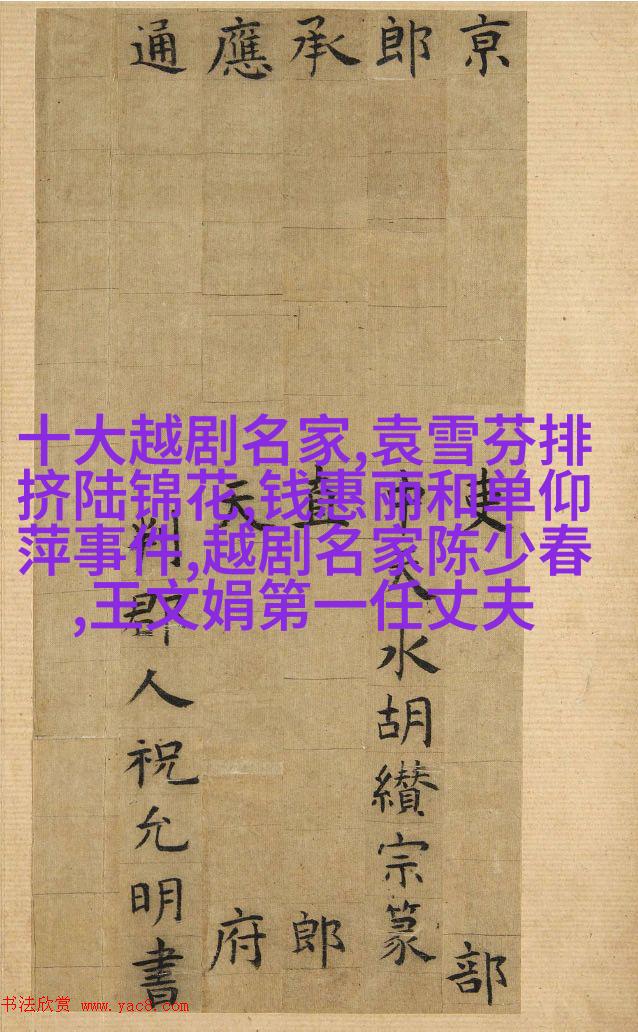 京吏部
郎中天水胡纘宗篆
承直郎
應天府
通判郡人祝允明書
十大越剧名家,袁雪芬排
挤陆锦花,钱惠丽和单仰
萍事件,越剧名家陈少春
,王文娟第一任丈夫
书法欣赏 www.yac8.com